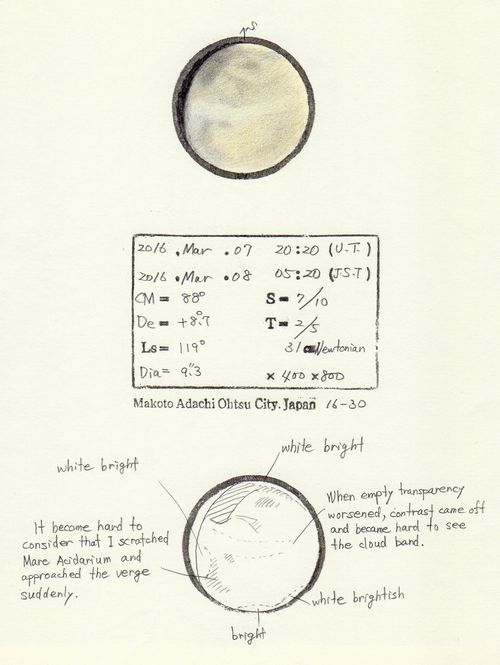 2016 . Mar . 07 20:20 (U.T.)
2016 . Mar . 08 05:20 (J.S.T)
CM = 88° S = 7/10
De = +8.°7 T = 2/5
Ls = 119° 31 Newtonian
Dia = 9."3 × 400 × 800
Makoto Adachi Ohtsu City. Japan 16-30
white bright
white bright
When empty transparency
worsened, contrast came off
and became hard to see
the cloud band.
It become hard to
consider that I scratched
Mare Acidarium and
approached the verge
suddenly.
white brightish
bright